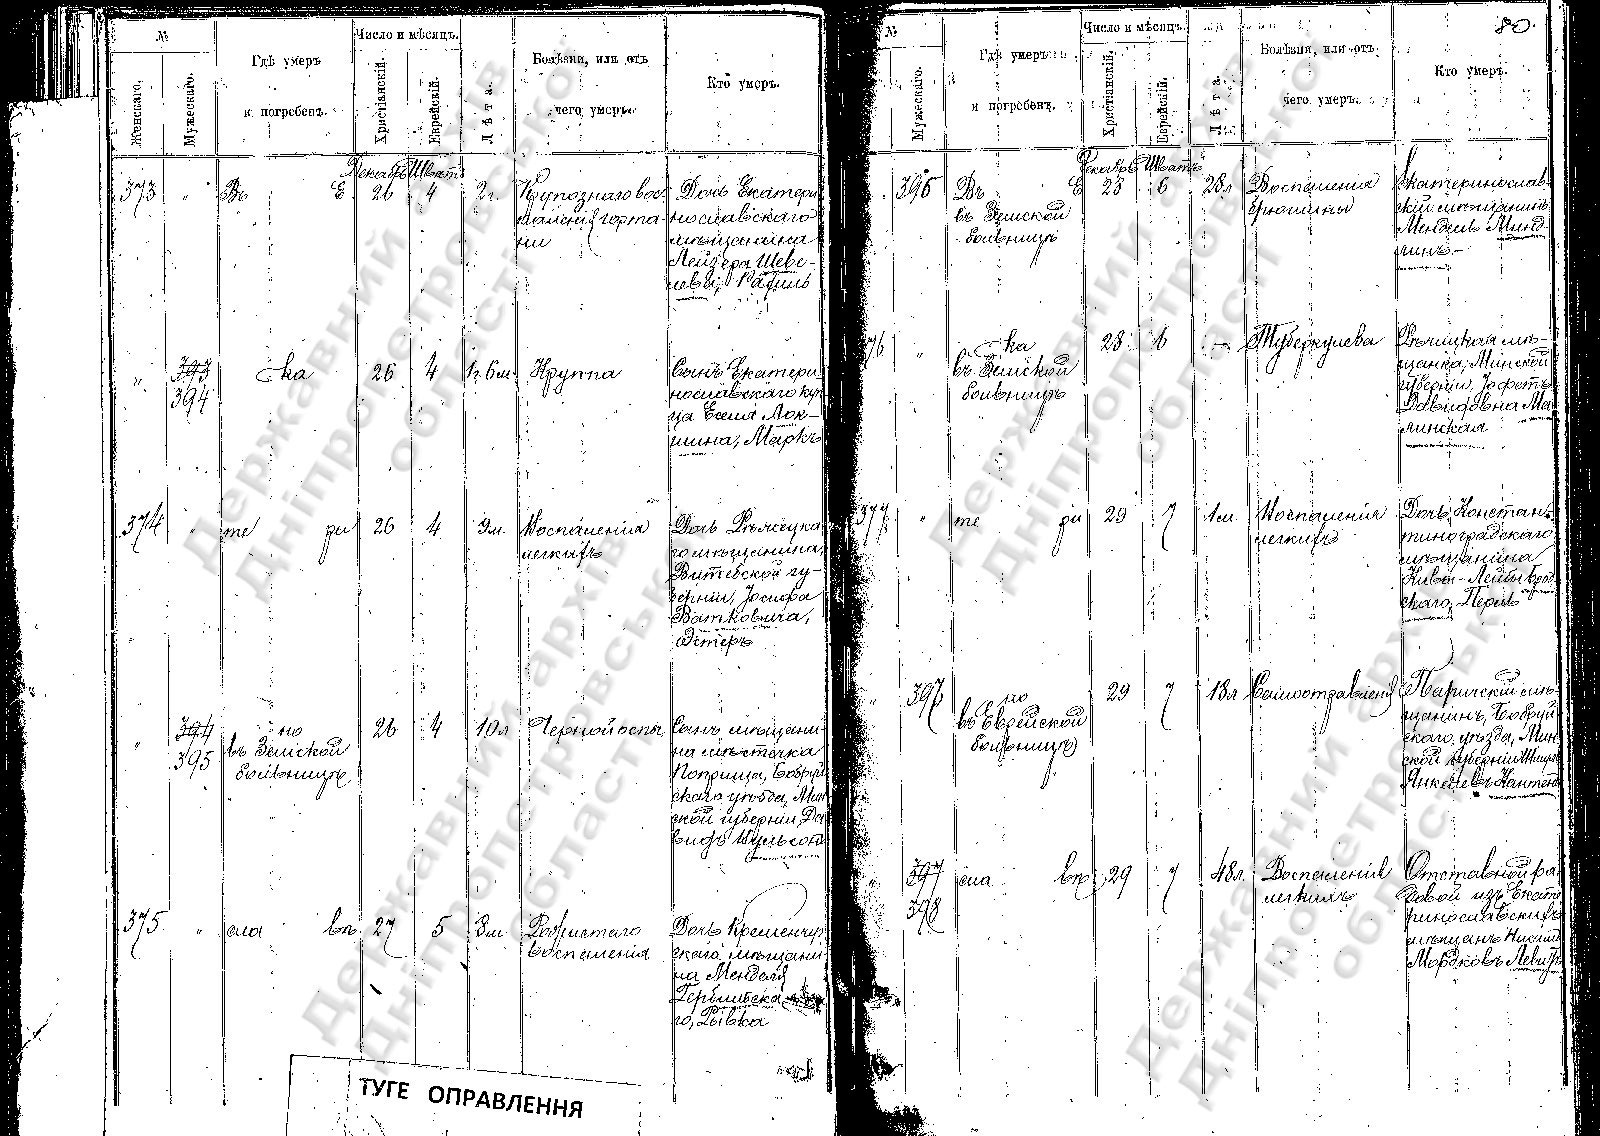 №
Женскаго.
Мужескаго.
Гдѣ умеръ
и погребенъ.
Число и мѣсяцъ.
Христіанскій.
Еврейскій.
Лѣта.
Болѣзни, или отъ
чего умеръ.
Кто умеръ.
Декабрь Шватъ
373 " Въ Е 26 4 2 г. Крупознаго вос-
паленія горта-
ни
Дочь Екатери
нославскаго
мѣщанина
Лейзера Шеве-
лева, Рахиль
" 393 394 ка 26 4 1 г. 6 м. Круппа
Сынъ Екатери
нославскаго куп
ца Лок-
шина, Маркъ
374 " те ри 26 4 9 м. Воспаленія
легкихъ
Дочь
го мѣщанина,
Витебской гу-
берніи, Іосифа
Ватковича,
Эстеръ
" 394 395 но
въ Земской
больницѣ
26 4 10 л Черной оспы
Сынъ мѣщани
на мѣстечка
Бобруй
скаго уѣзда, Мин
ской губерніи, Да
видъ
375 " сла въ 27 5 3 м.
воспаленія
Дочь Кременчуг
скаго мѣщани-
на Менделя
го, Ривка
ТУГЕ ОПРАВЛЕННЯ
80.
№
Мужескаго.
Гдѣ умеръ
и погребенъ.
Число и мѣсяцъ.
Христіанскій.
Еврейскій.
Лѣта.
Болѣзни, или отъ
чего умеръ.
Кто умеръ.
Декабрь Шватъ
396 Въ Е
въ Земской
больницѣ
28 6 28 л Воспаленія
брюшины
Екатеринослав-
скій мѣщанинъ
Мендель Минд-
линъ
376 " ка
въ Земской
больницѣ
28 6 — Туберкулеза
Рѣчицкая мѣ-
щанка, Минской
губерніи,
Давидовна Ма-
линская
377 " те ри 29 7 1 м. Воспаленія
легкихъ
Дочь Констан-
тиноградскаго
мѣщанина
Кивы-Лейбы Брод
скаго, Перль
" 397 но
въ Еврейской
больницѣ
29 7 18 л Самоотравленія
Паричскій мѣ-
щанинъ, Бобруй
скаго уѣзда, Мин
ской губерніи
Янкелевъ
" 397 398 сла въ 29 7 48 л. Воспаленія
легкихъ
Отставной ря-
довой изъ Екате
ринославскихъ
мѣщанъ
Мордковъ
Державний архів
Дніпропетровської
області